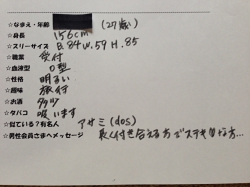 ☆なまえ・年齢 (27歳)
☆身長 156cm
☆スリーサイズ B.84 W.59 H.85
☆職業 受付
☆血液型 O型
☆性格 明るい
☆趣味 旅行
☆お酒 タタツ
☆タバコ 吸います
☆似ている?有名人 アサミ(dos)
☆男性会員さまへメッセージ
付き合える方でステキな方...